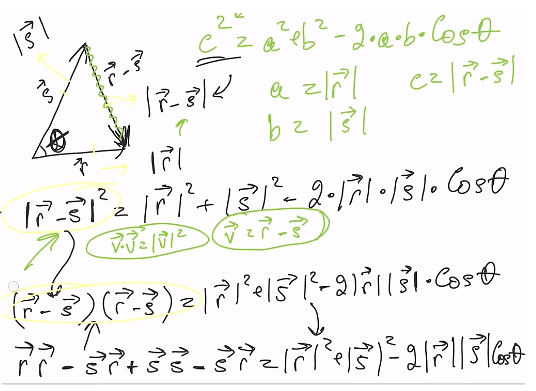 |s⃗|
c² = a² + b² - 2·a·b·Cosθ
s⃗ r⃗-s⃗
|r⃗-s⃗| a = |r⃗| c = |r⃗-s⃗|
θ b = |s⃗|
r⃗ |r⃗|
|r⃗-s⃗|² = |r⃗|² + |s⃗|² - 2·|r⃗|·|s⃗|·Cosθ
v⃗·v⃗=|v⃗|² v⃗=r⃗-s⃗
(r⃗-s⃗)(r⃗-s⃗) = |r⃗|²+|s⃗|²-2|r⃗||s⃗|·Cosθ
r⃗r⃗ - s⃗r⃗ + s⃗s⃗ - s⃗r⃗ = |r⃗|²+|s⃗|²-2|r⃗||s⃗|Cosθ